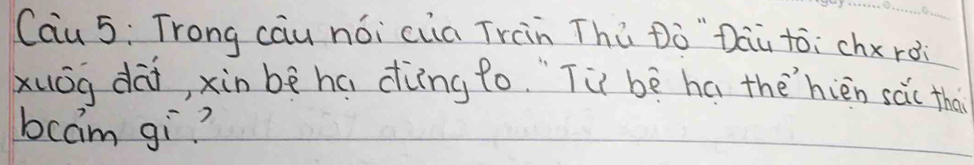 Câu 5: Trong câu nói của Trần Thủ Độ "Đầu tôi chx rơi
xuốg đất, xin bệ hạ đừng lo." Từ bệ hạ thể hiện sắc thái
bcảm gì?